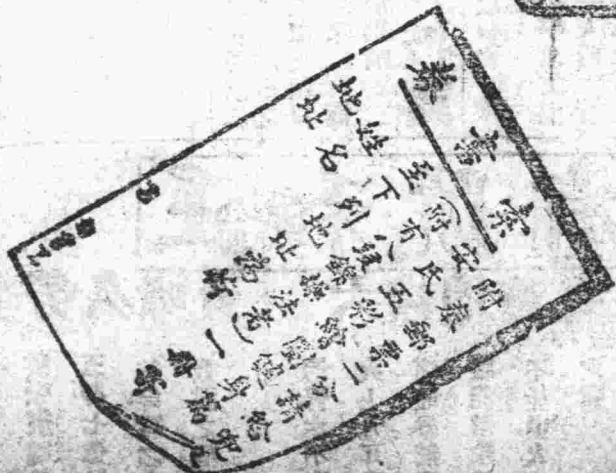 索書券
附奉郵票二分請給兜
安氏五彩繪圖健身寫
(附有八段錦操法者)一冊寄
至下列地址為荷
姓名
地址